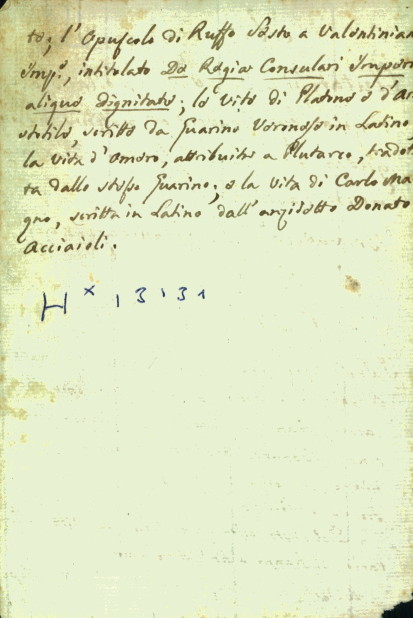 to; l'Opuscolo di Ruffo Sesto a Valentinian
Imp.º, intitolato De Regia Consulari Imper
aliqua dignitate; le Vite di Platone e d'Ar
stotile, scritte da Guarino Veronese in Latino
la Vita d'Omero, attribuita a Plutarco, tradot
ta dallo stesso Guarino; e la Vita di Carlo Ma
gno, scritta in Latino dall'anzidetto Donato
Acciaioli.
H x 13131